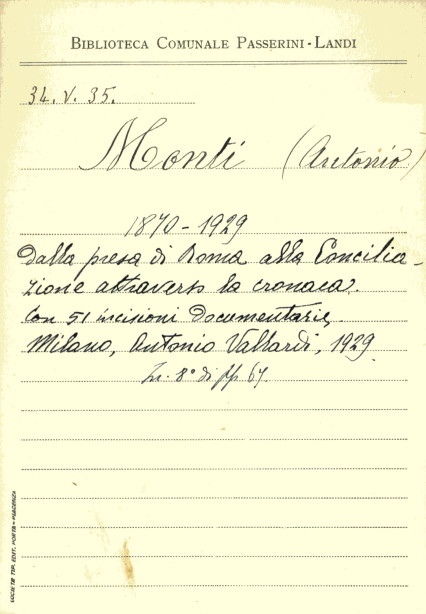 BIBLIOTECA COMUNALE PASSERINI-LANDI
34. V. 35.
Monti (Antonio)
1870-1929
Dalla presa di Roma alla Concilia-
zione attraverso la cronaca.
Con 51 incisioni documentarie,
Milano, Antonio Vallardi, 1929
In. 8° di pp 67.
SOCIETÀ TIP. EDIT. PORTA - PIACENZA